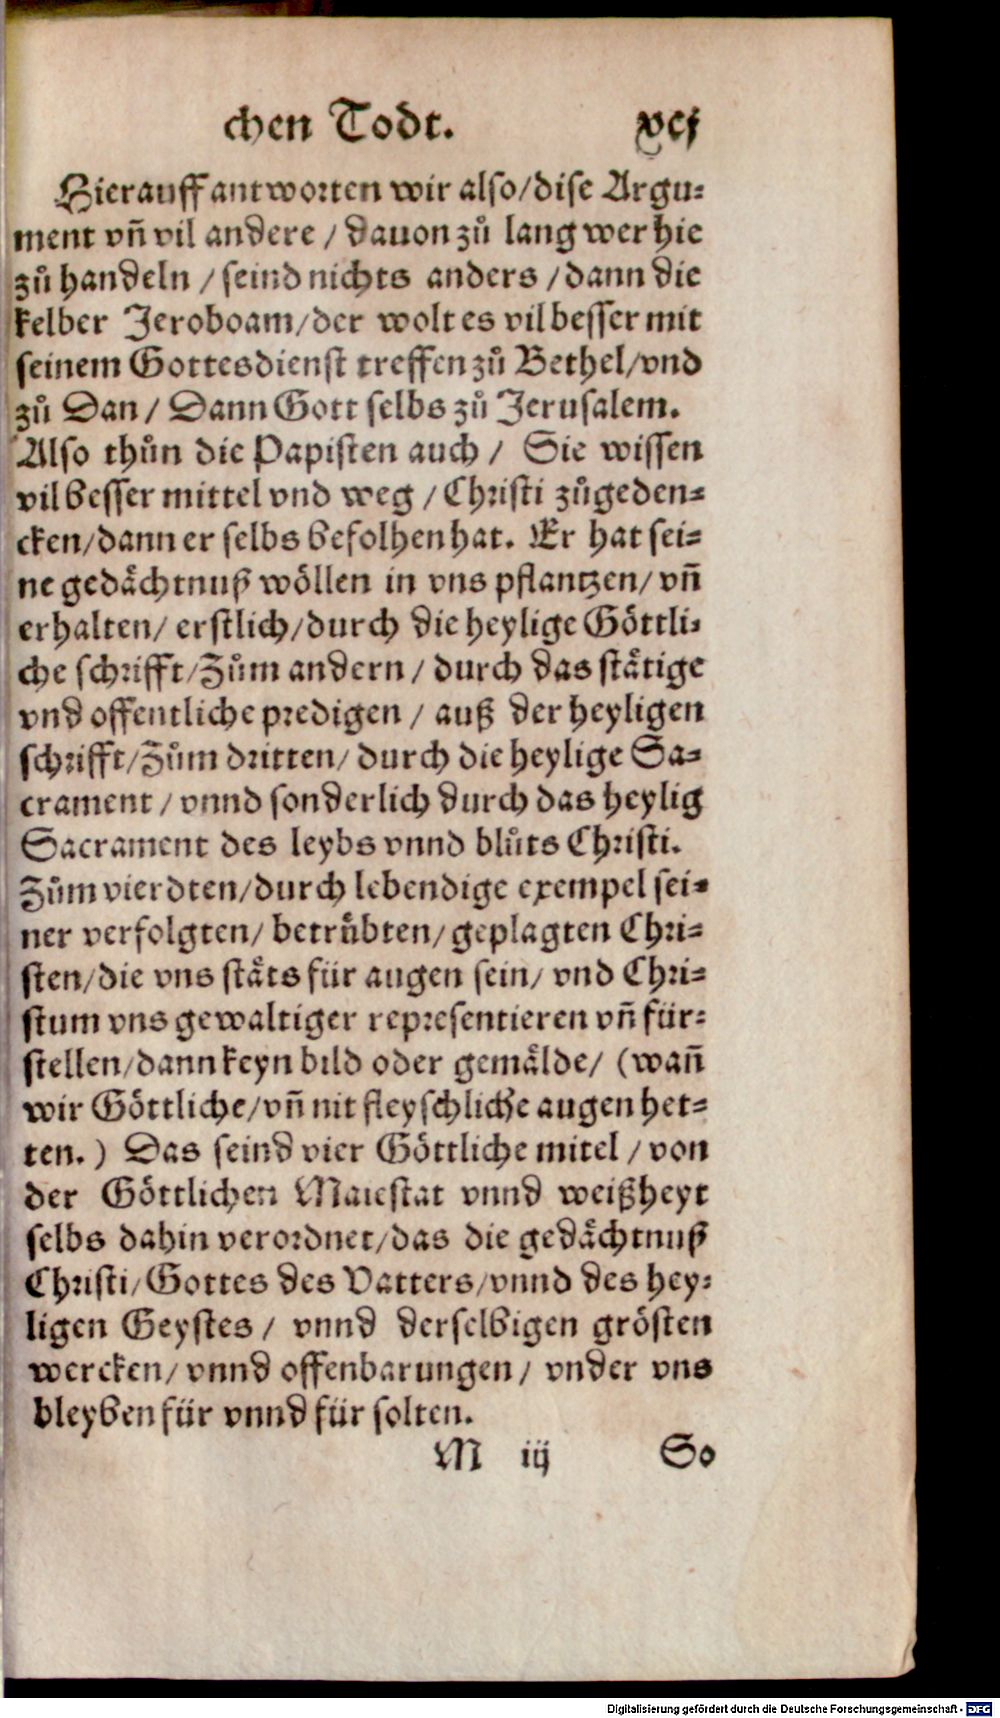 chen Todt. xcj
Hierauff antworten wir also/dise Argu⸗
ment vñ vil andere / dauon zů lang wer hie
zů handeln / seind nichts anders / dann die
kelber Jeroboam/der wolt es vil besser mit
seinem Gottesdienst treffen zů Bethel/vnd
zů Dan / Dann Gott selbs zů Jerusalem.
Also thůn die Papisten auch / Sie wissen
vil besser mittel vnd weg / Christi zůgeden⸗
cken/dann er selbs befolhen hat. Er hat sei⸗
ne gedächtnuß wöllen in vns pflantzen/ vñ
erhalten/ erstlich/durch die heylige Göttli⸗
che schrifft/Zům andern / durch das stätige
vnd offentliche predigen / auß der heyligen
schrifft/Zům dritten/ durch die heylige Sa⸗
crament / vnnd sonderlich durch das heylig
Sacrament des leybs vnnd blůts Christi.
Zům vierdten/durch lebendige exempel sei⸗
ner verfolgten/ betrübten/ geplagten Chri⸗
sten/die vns stäts für augen sein/ vnd Chri⸗
stum vns gewaltiger representieren vñ für⸗
stellen/dann keyn bild oder gemälde/ (wañ
wir Göttliche/vñ nit fleyschliche augen het⸗
ten.) Das seind vier Göttliche mitel / von
der Göttlichen Maiestat vnnd weißheyt
selbs dahin verordnet/das die gedächtnuß
Christi/Gottes des Vatters/vnnd des hey⸗
ligen Geystes / vnnd derselbigen grösten
wercken/ vnnd offenbarungen / vnder vns
bleyben für vnnd für solten.
M iij So
Digitalisierung gefördert durch die Deutsche Forschungsgemeinschaft - DFG